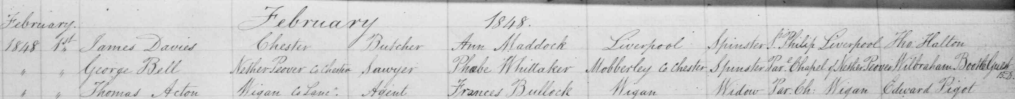 February 1848.
February
1848 1st James Davies Chester Butcher Ann Maddock Liverpool Spinster St Philip Liverpool Tho. Halton
" " George Bell Nether Peover Co Chester Sawyer Phœbe Whittaker Mobberley Co Chester Spinster Par. Chapel of Nether Peover Wilbraham Booth
" " Thomas Acton Wigan Co Lanc. Agent Frances Bullock Wigan Widow Par. Ch. Wigan Edward Pigot